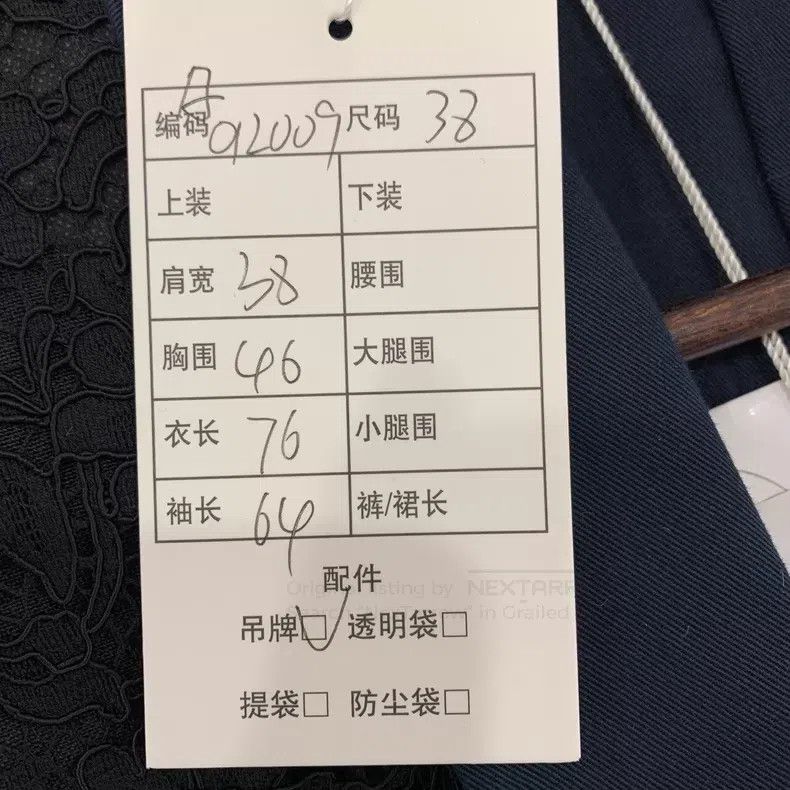 编码 92009 尺码 38
上装 下装
肩宽 38 腰围
胸围 46 大腿围
衣长 76 小腿围
袖长 64 裤/裙长
配件
Original listing by NEXTARR
in Grailed
吊牌☑ 透明袋□
提袋□ 防尘袋□